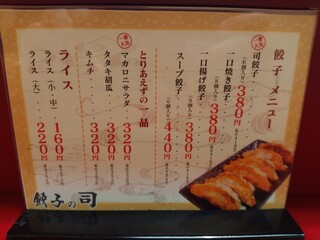 餃子 メニュー
司餃子 380円
一口焼き餃子 380円
一口揚げ餃子 380円
スープ餃子 440円
とりあえずの一品
マカロニサラダ 320円
タタキ胡瓜 320円
キムチ 320円
ライス
ライス(小・中) 180円
ライス(大) 220円
餃子の司